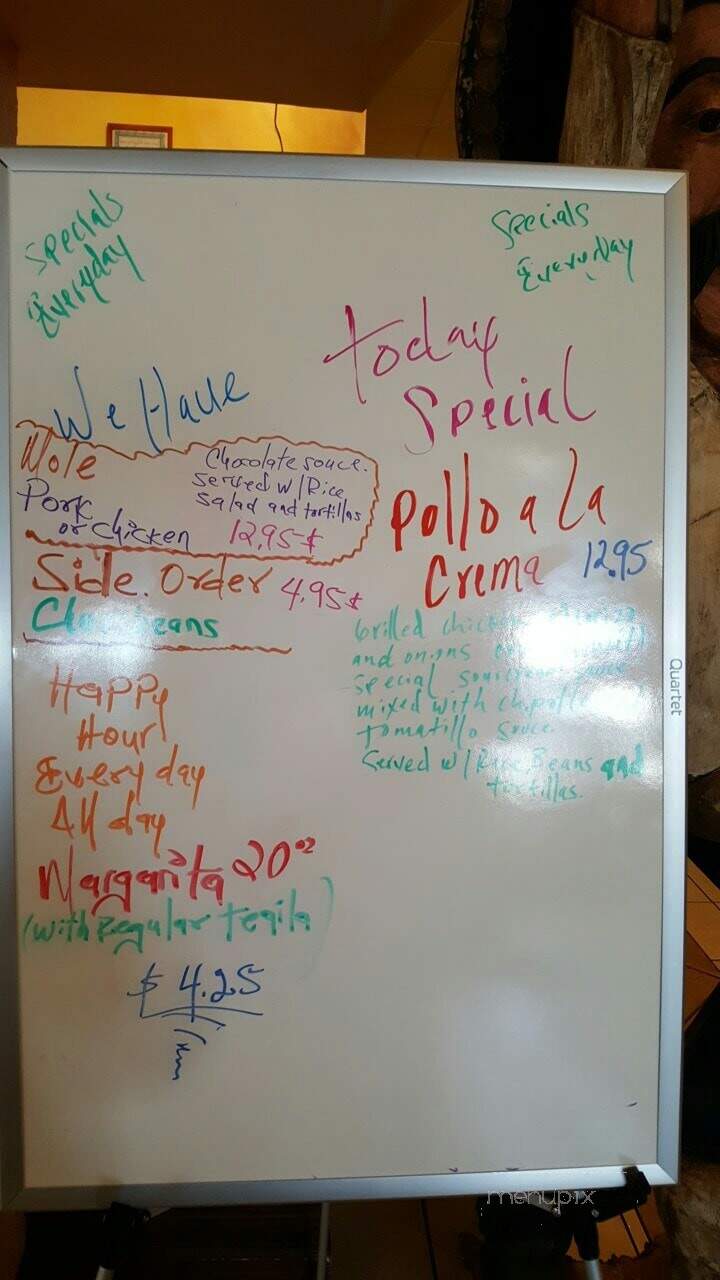 Specials
Everyday
Specials
Everyday
We Have
Mole
Pork
or chicken
Chocolate souce.
served w/Rice
salad and tortillas
12,95$
Side. Order 4.95$
beans
Happy
Hour
Every day
All day
Margarita 20oz
(with Regular Teqila)
$ 4.25
Today
Special
Pollo a la
Crema 12.95
Grilled
and onions
special
mixed with
tomatillo souce.
Served w/Rice, Beans and
tortillas.
Quartet
menupix